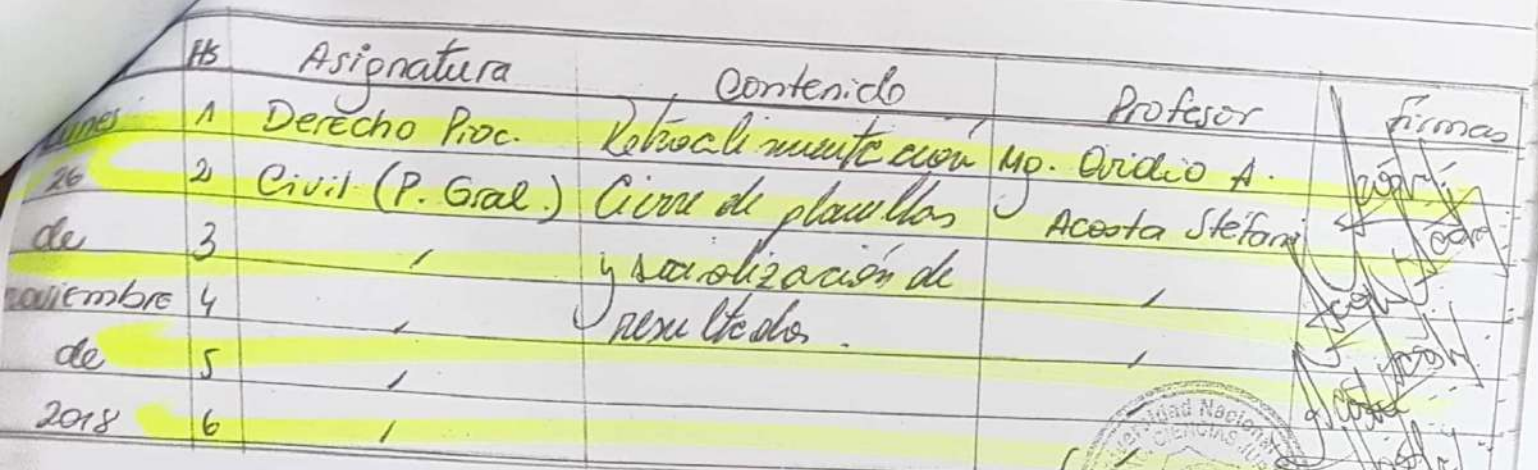 Hs Asignatura Contenido Profesor Firmas
Lunes 1 Derecho Proc. Retroalimentación Mg. Ovidio A.
26 2 Civil (P. Gral.) Cierre de planillas Acosta Stefani
de 3 y socialización de
noviembre 4 resultados.
de 5
2018 6
Universidad Nacional
CIENCIAS JUR